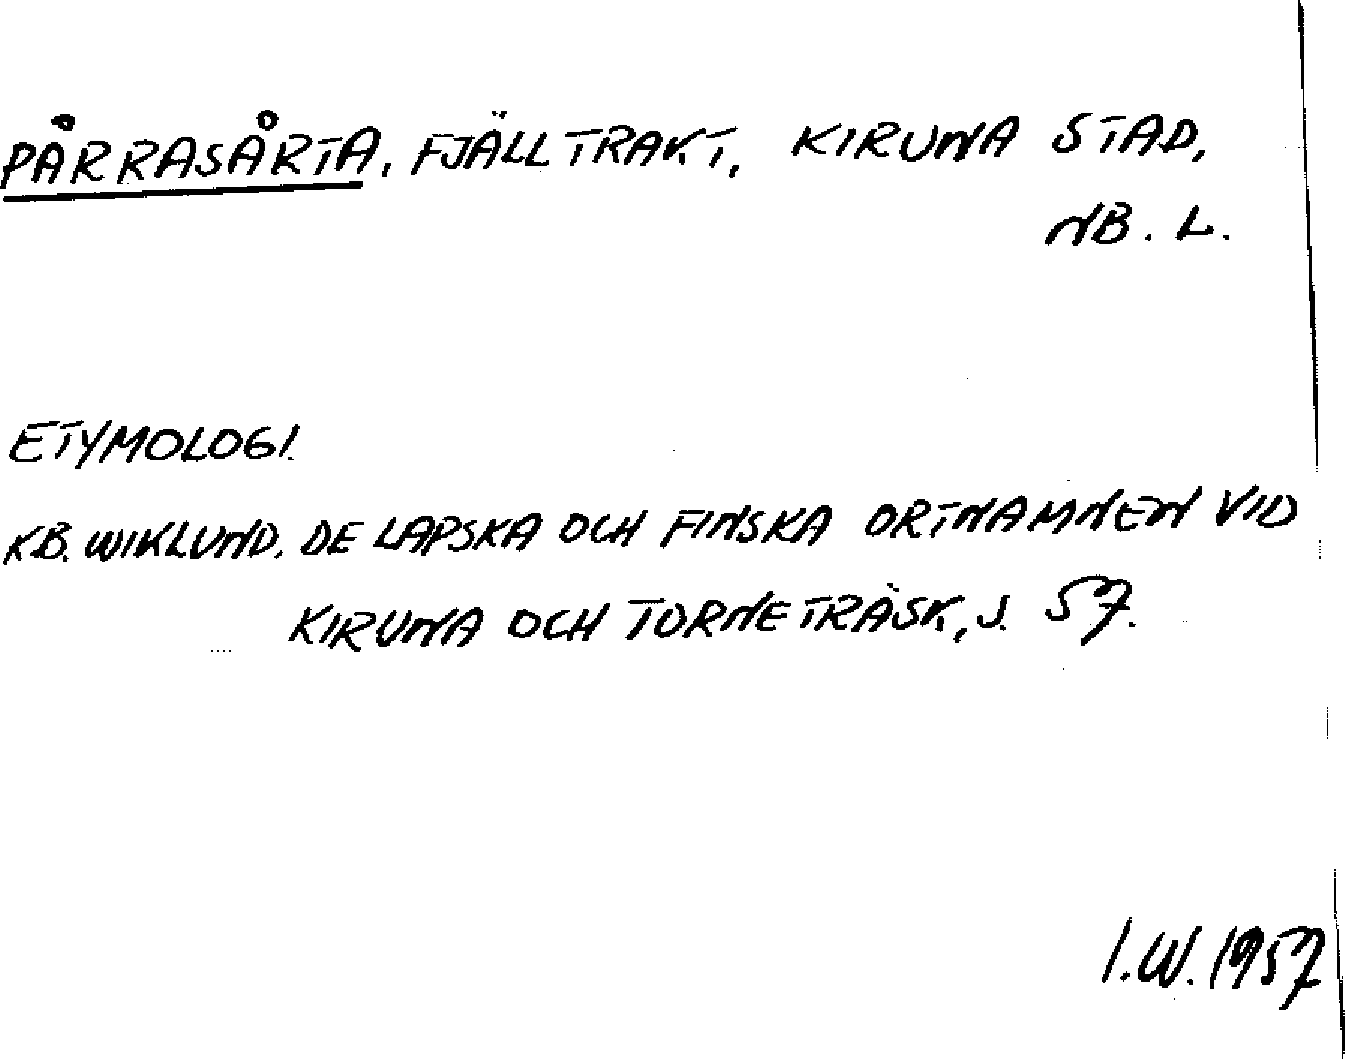 PÅRRASÅRTA, FJÄLLTRAKT, KIRUNA STAD,
NB. L.
ETYMOLOGI.
KB. WIKLUND. DE LAPSKA OCH FINSKA ORTNAMNEN VID
KIRUNA OCH TORNETRÄSK, s. 57.
I.W. 1957